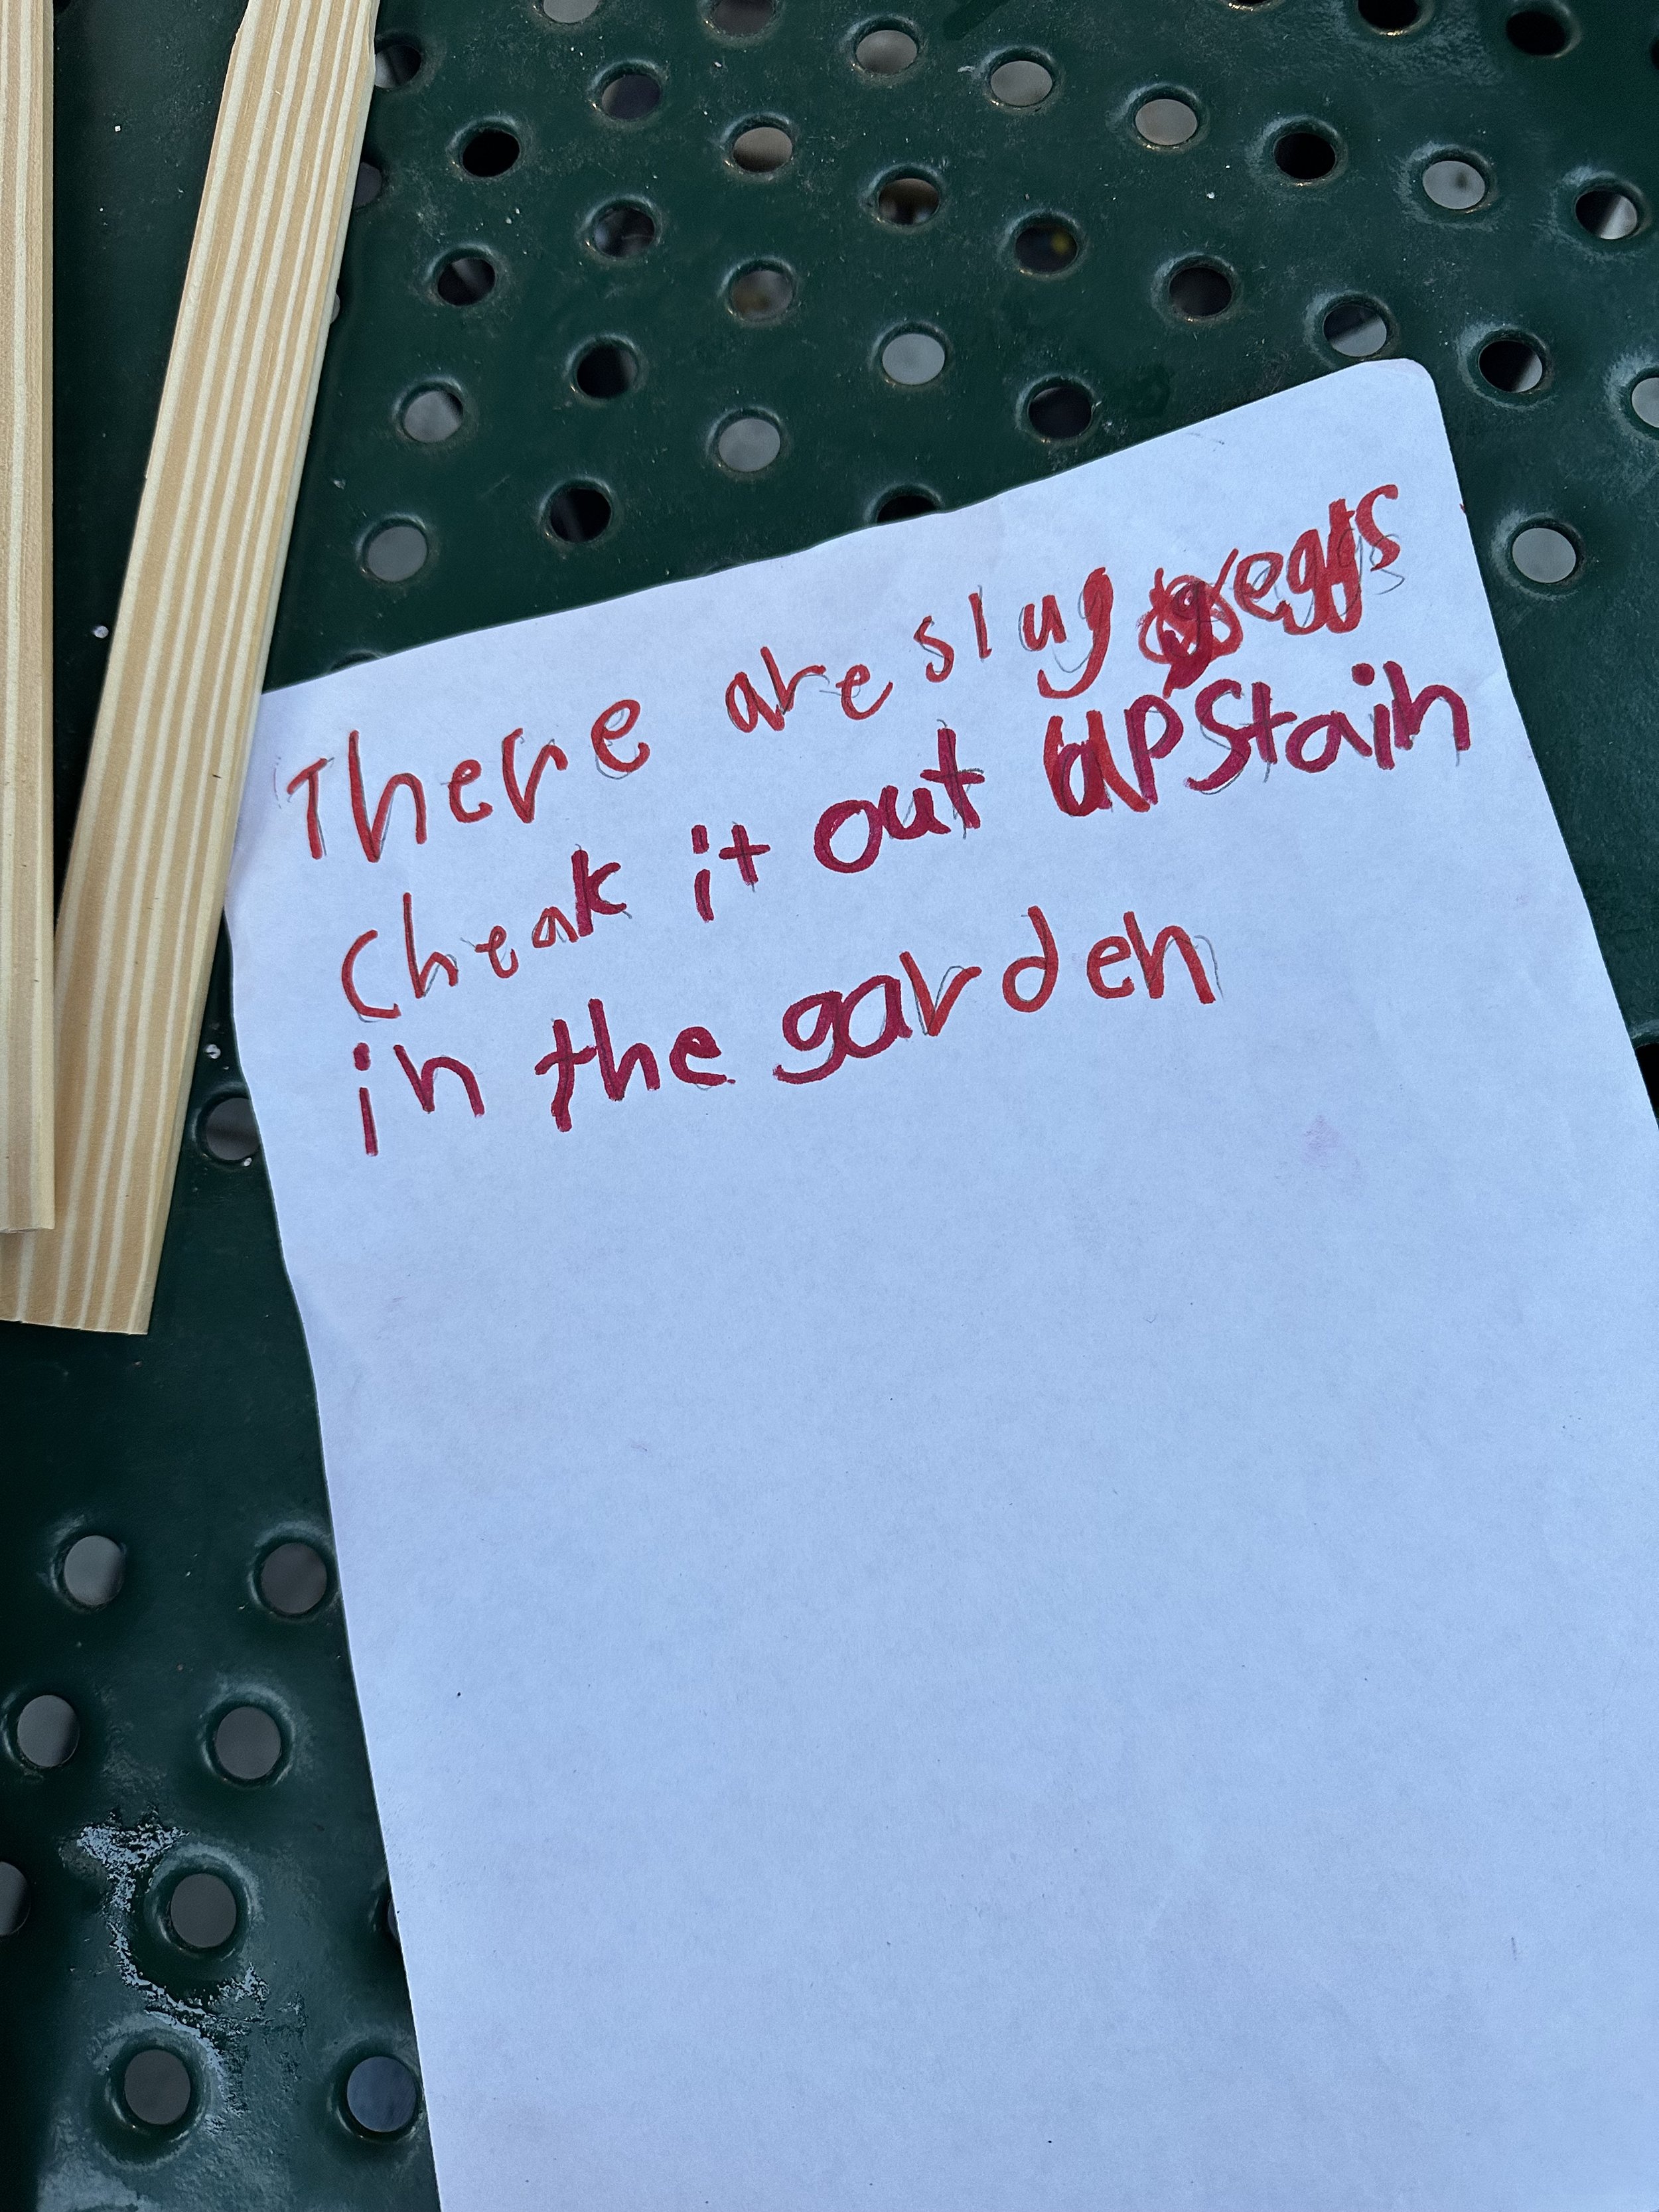 There are slug eggs
Cheak it out upstair
in the garden